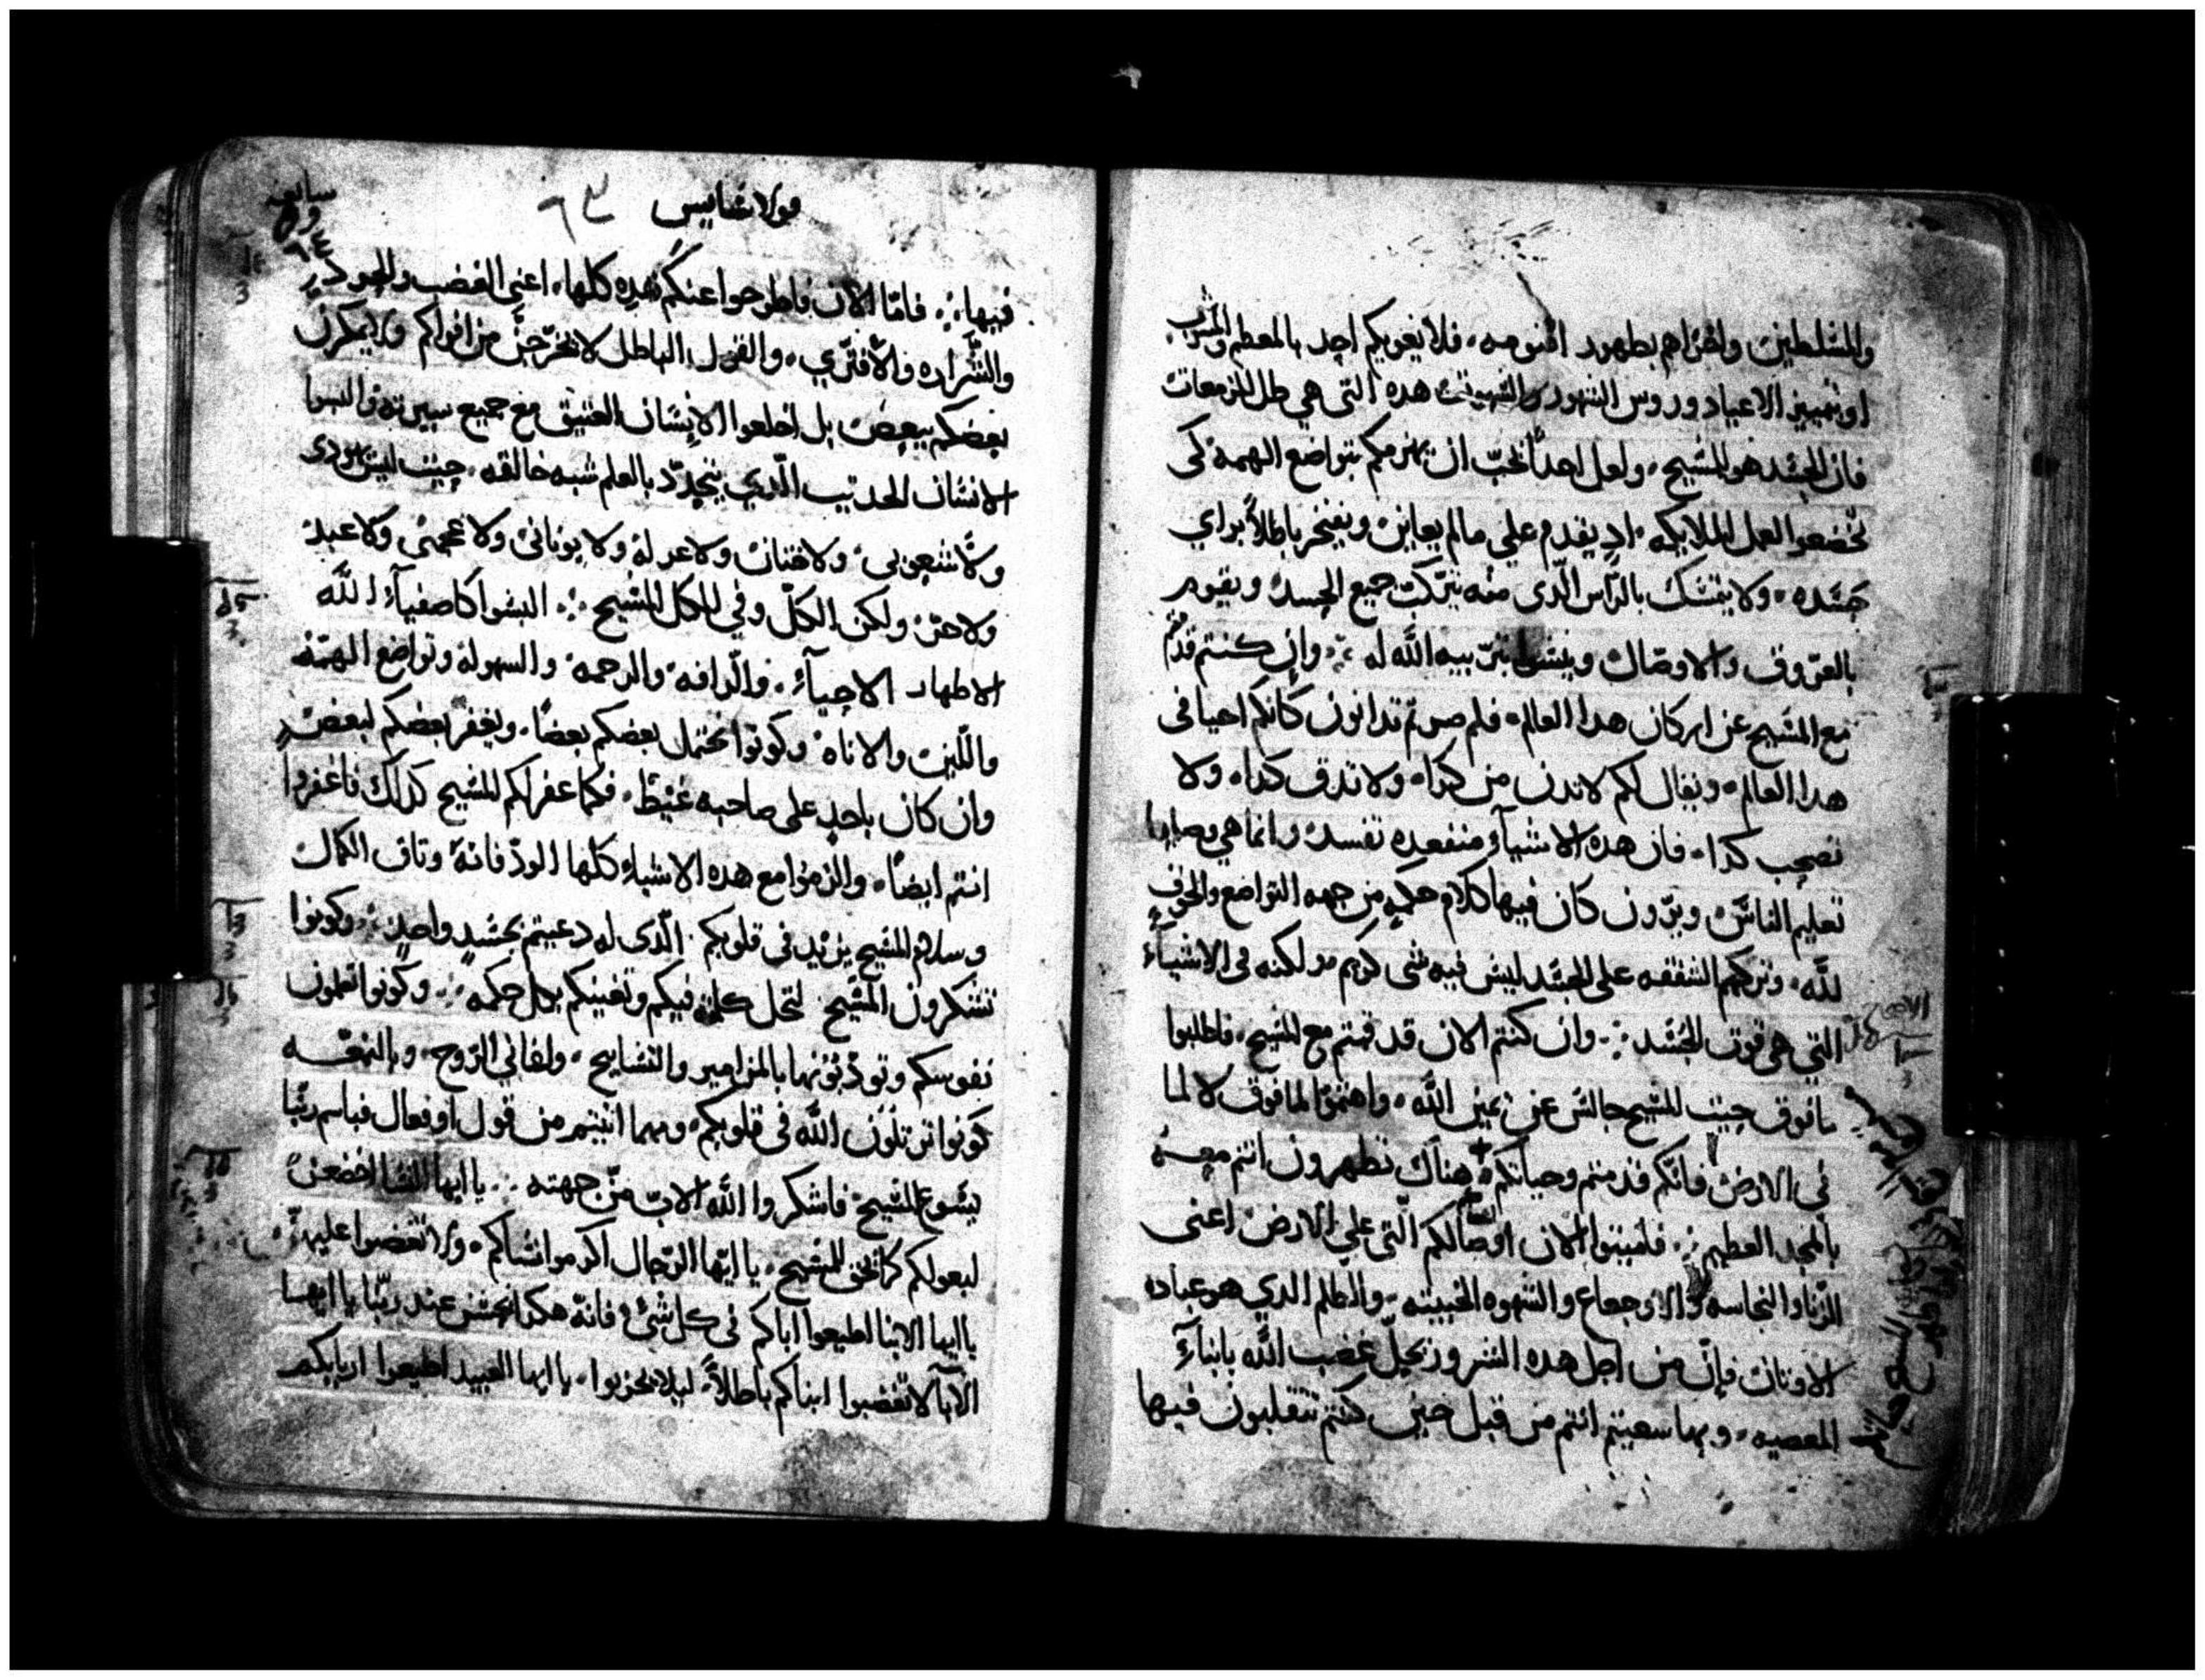 والمسلطين واخزاهم بطهور اقنومه، فلا يغويكم احد بالمعطم والمشرب
او تمييز الاعياد وروس الشهور والسبوت هده التي هي طل المزمعات
فان الجسد هو المسيح، ولعل احداً يحب ان يهزمكم بتواضع الهمه كى
تخضعوا لعمل الملايكه، اد يقدم على مالم يعاين ويفتخر باطلاً براي
جسده، ولا يتمسك بالراس الدى منه يتركب جميع الجسد ويقوم
بالعروق والاوصال وينشوا بتربيه الله له ፡ وان كنتم قد متم
مع المسيح عن اركان هدا العالم، فلم صرتم تدانون كانكم احيا فى
هدا العالم، ويقال لكم لا تدن من كدا، ولا تدق كدا، ولا
تصحب كدا، فان هده الاشيآء منفعه تفسد وانما هى وصايا
تعليم الناس، ويرون كان فيها كلام حكمه من جهه التواضع والخوف
لله، وتركهم الشفقه على الجسد ليس فيه شى كريم لكنه فى الاشيآء
التي هى قوت الجسد ፡ وان كنتم الان قد قمتم مع المسيح، فاطلبوا
ما فوق حيث المسيح جالس عن يمين الله، واهتموا لما فوق لا لما
فى الارض فانكم قد متم وحياتكم هناك تطهرون انتم معه
بالمجد العطيم ፡ فاميتوا الان اوصالكم التى على الارض اعنى
الزنا والنجاسه والاوجاع والشهوه الخبيثه، والطلم الدي هو عباده
الاوثان فان من اجل هده الشرور يحل غضب الله بابنآء
المعصيه، وبها سعيتم انتم من قبل حين كنتم تتقلبون فيها
قولاسايس ٦٣
فيها ፡ فاما الان فاطرحوا عنكم هده كلها، اعنى الغضب والحرد
والشراره والافترى، والقول الباطل لا يخرجن من افواكم ولا يمكرن
بعضكم ببعض بل اخلعوا الانسان العتيق مع جميع سيرته والبسوا
الانسان الحديث الدي يتجدد بالعلم شبه خالقه، حيث ليس يهودى
ولا شعوبى ولا ختان ولا عرله ولا يونانى ولا عجمى ولا عبد
ولا حر، ولكن الكل وفي الكل المسيح ፡ البسوا كاصفيآء الله
الاطهار الاحبآء، والرافه والرحمه والسهوله وتواضع الهمه
واللين والاناه وكونوا يحتمل بعضكم بعضاً، ويغفر بعضكم لبعض
وان كان باحد على صاحبه غيظ، فكما غفر لكم المسيح كدلك فاغفروا
انتم ايضاً، والزموا مع هده الاشيآء كلها الود فانه وثاق الكمال
وسلام المسيح يزيد فى قلوبكم الدى له دعيتم بجسد واحد ፡ وكونوا
تشكرون المسيح لتحل كلمته فيكم وتغنيكم بكل حكمه ፡ وكونوا تعلمون
نفوسكم وتودبونها بالمزامير والتسابيح، ولغانى الروح، وبالنعمه
كونوا ترتلون الله فى قلوبكم، ومهما اتيتم من قول او فعال فباسم ربنا
يسوع المسيح فاشكروا الله الاب من جهته ፡ يا ايها النسا اخضعن
لبعولكم كما يحق للمسيح، يا ايها الرجال اكرموا نساكم، ولا تغضبوا عليهن
يا ايها الابنا اطيعوا اباكم فى كل شى فانه هكدا يحسن عند ربنا يا ايها
الابآ لا تغضبوا ابناكم باطلاً، ليلا يحزنوا، يا ايها العبيد اطيعوا اربابكم